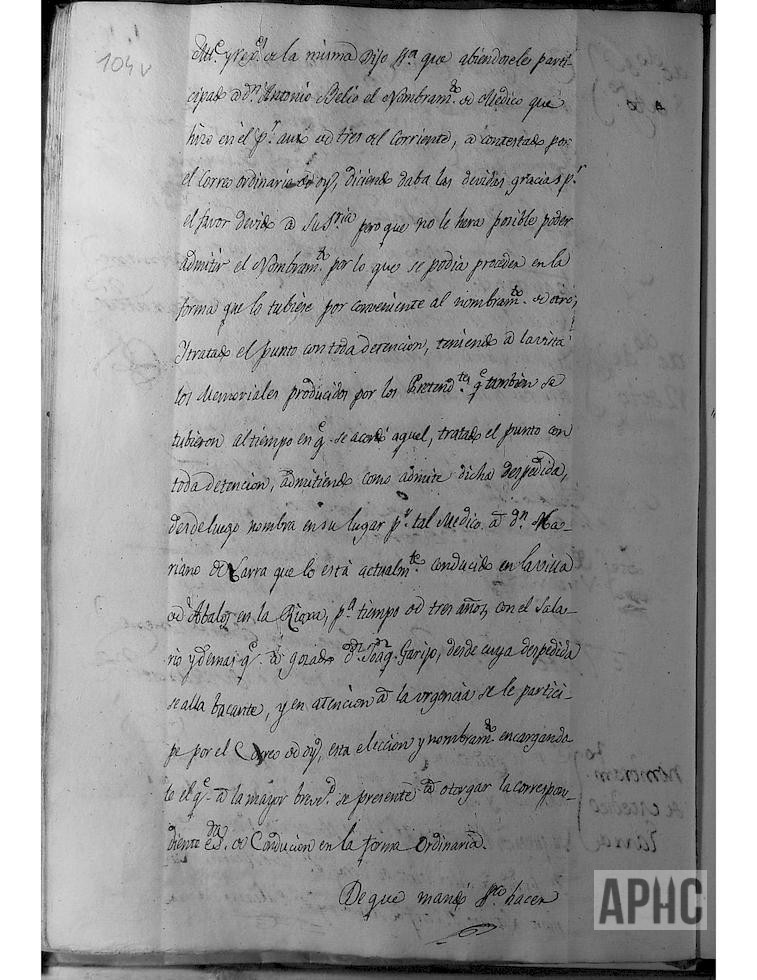 104v
Alc.e y Rex.l de la misma Dijo S.ria que abiendosele parti-
cipado a D.n Antonio Belio el Nombram.to de Medico que
hizo en el p.r auto de tres del Corriente, a contestado por
el Correo ordinario de oy, diciendo daba las devidas gracias p.r
el favor devido a Su S.ria pero que no le hera posible poder
admitir el Nombram.to por lo que se podia proceder en la
forma que lo tubiese por conveniente al nombram.to de otro;
Y tratado el punto con toda detencion, teniendo a la vista
los Memoriales producidos por los Pretend.tes q.e tambien se
tubieron al tiempo en q.e se acordó aquel, tratado el punto con
toda detencion, admitiendo como admite dicha despedida,
desde luego nombra en su lugar p.r tal Medico a D.n Ma-
riano de Larra que lo está actualm.te conducido en la villa
de Abalos en la Rioxa, p.a tiempo de tres años, con el Sala-
rio y demas q.e a gozado D.n Joaq.n Garijo, desde cuya despedida
se alla bacante, y en atencion a la urgencia se le partici-
pe por el Correo de oy, esta eleccion y nombram.to encargando
le el q.e a la mayor breve.d se presente a otorgar la correspon-
diente es.ra de Conducion en la forma Ordinaria.
De que mandó S.ria hacer
nombram.to
de Medico
Larra
APHC